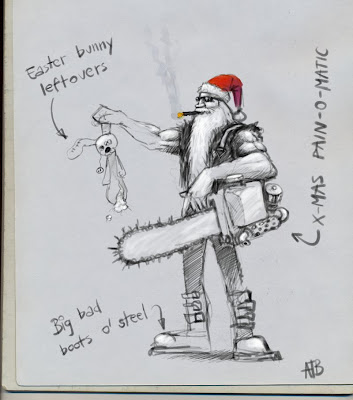 Easter bunny
leftovers
X-MAS PAIN-O-MATIC
Big bad
boots o' steel
AJB